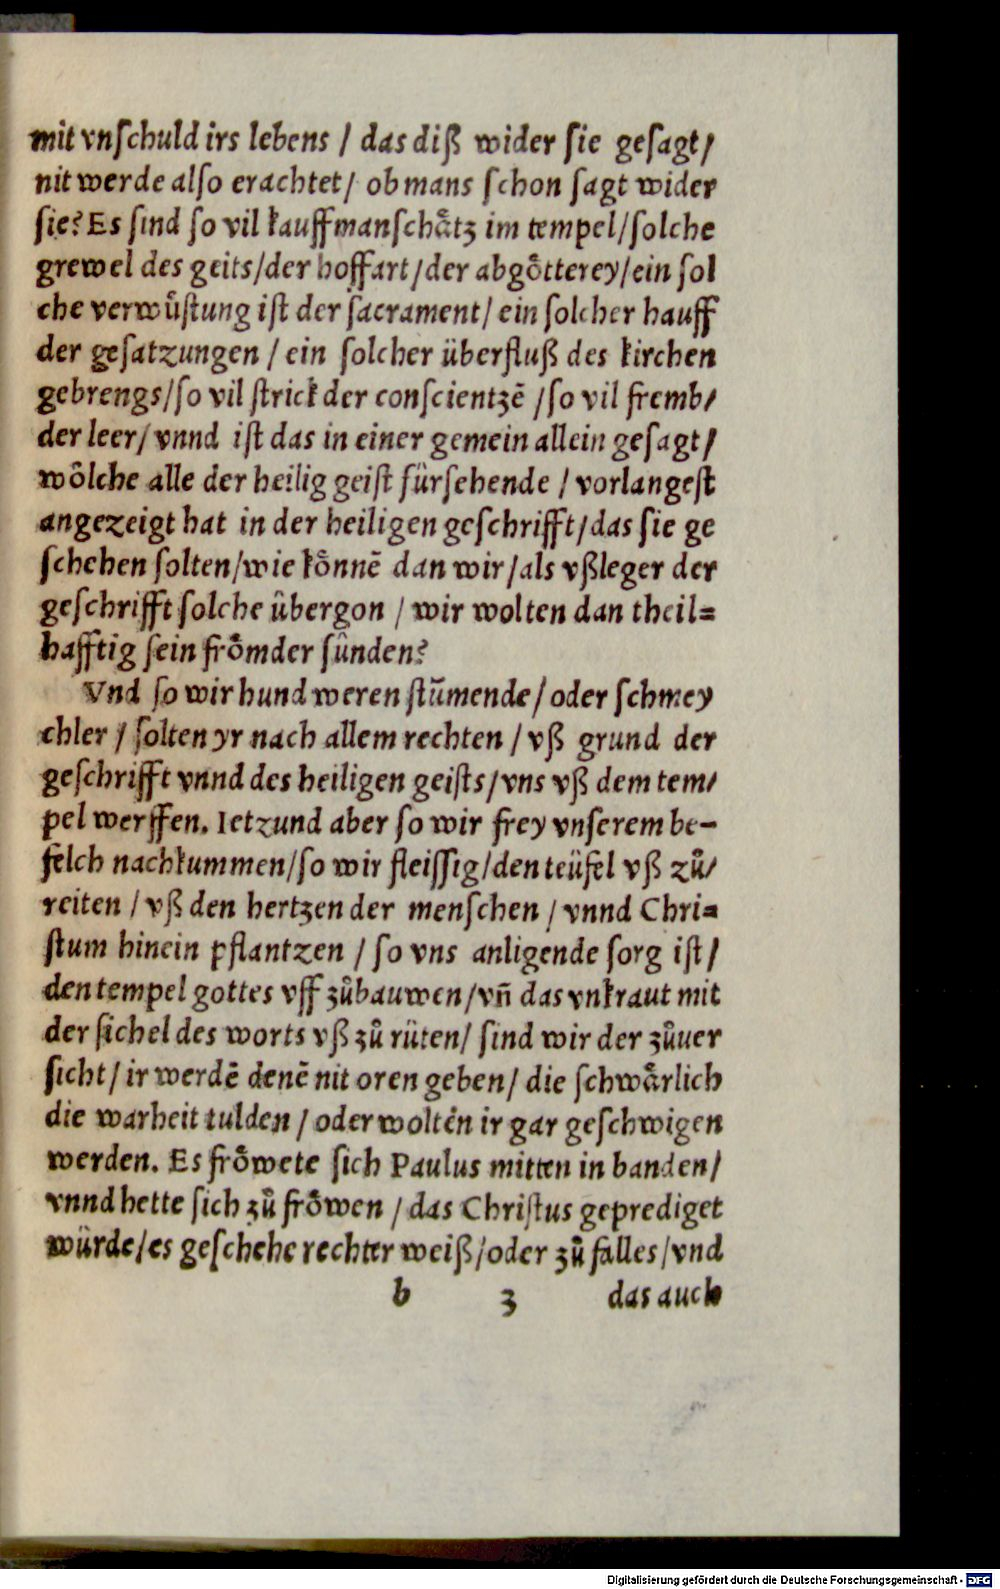 mit vnſchuld irs lebens / das diß wider ſie geſagt /
nit werde alſo erachtet / ob mans ſchon ſagt wider
ſie? Es ſind ſo vil kauffmanſchåtz im tempel / ſolche
grewel des geits / der hoffart / der abgõtterey / ein ſol
che verwůſtung iſt der ſacrament / ein ſolcher hauff
der geſatzungen / ein ſolcher überfluß des kirchen
gebrengs / ſo vil ſtrick der conſcientzẽ / ſo vil fremb⸗
der leer / vnnd iſt das in einer gemein allein geſagt /
wõlche alle der heilig geiſt fürſehende / vorlangeſt
angezeigt hat in der heiligen geſchrifft / das ſie ge
ſchehen ſolten / wie kõnnẽ dan wir / als vßleger der
geſchrifft ſolche übergon / wir wolten dan theil⸗
hafftig ſein frõmder ſünden?
Vnd ſo wir hund weren ſtum̃ende / oder ſchmey
chler / ſolten yr nach allem rechten / vß grund der
geſchrifft vnnd des heiligen geiſts / vns vß dem tem⸗
pel werffen. Ietzund aber ſo wir frey vnſerem be-
felch nachkummen / ſo wir fleiſſig / den teüfel vß zů⸗
reiten / vß den hertzen der menſchen / vnnd Chri⸗
ſtum hinein pflantzen / ſo vns anligende ſorg iſt /
den tempel gottes vff zůbauwen / vñ das vnkraut mit
der ſichel des worts vß zů rüten / ſind wir der zůuer
ſicht / ir werdẽ denẽ nit oren geben / die ſchwårlich
die warheit tulden / oder wolten ir gar geſchwigen
werden. Es frõwete ſich Paulus mitten in banden /
vnnd hette ſich zů frõwen / das Chriſtus geprediget
würde / es geſchehe rechter weiß / oder zů falles / vnd
b 3 das auch
Digitalisierung gefördert durch die Deutsche Forschungsgemeinschaft - DFG